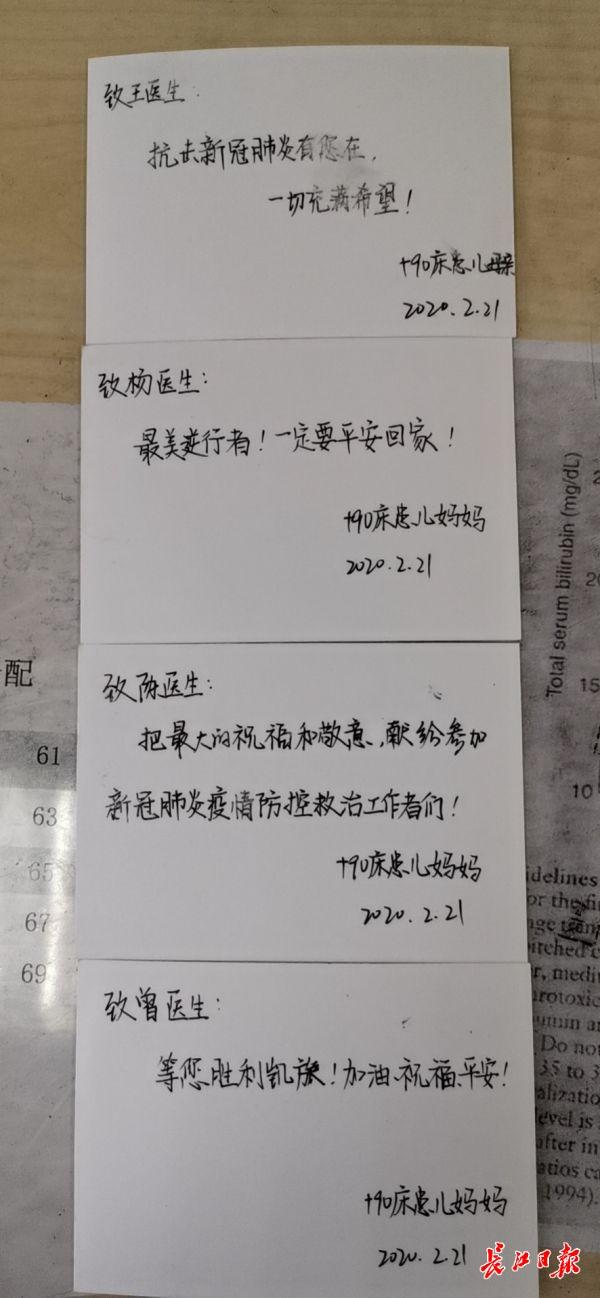 致王医生：
抗击新冠肺炎有您在，
一切充满希望！
+90床患儿母亲
2020.2.21
致杨医生：
最美逆行者！一定要平安回家！
+90床患儿妈妈
2020.2.21
致陈医生：
把最大的祝福和敬意、献给参加
新冠肺炎疫情防控救治工作者们！
+90床患儿妈妈
2020.2.21
致曾医生：
等您胜利凯旋！加油、祝福、平安！
+90床患儿妈妈
2020.2.21
配
61
63
65
67
69
Total serum bilirubin (mg/dL)
20
15
10
idelines
or the fi
nge tran
itched c
r, medi
urotoxic
umin an
Do not
35 to 3
alizatio
level is
after in
atios ca
1994).
长江日报